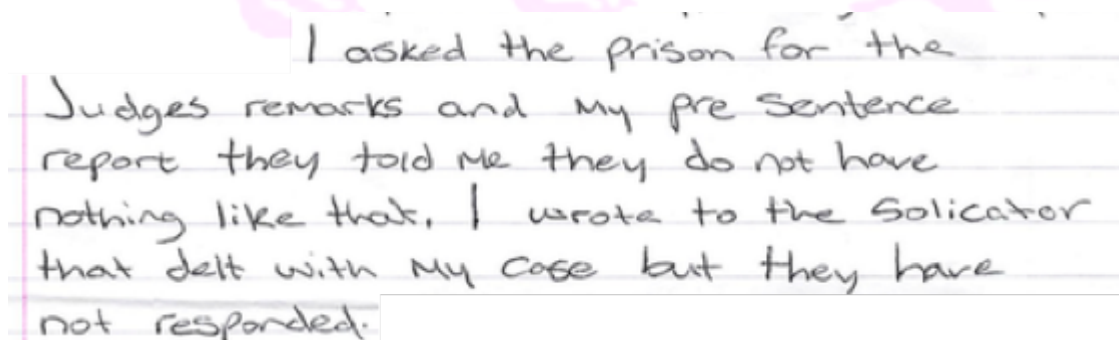 I asked the prison for the
Judges remarks and My pre Sentence
report they told me they do not have
nothing like that. I wrote to the Solicator
that delt with My case but they have
not responded.